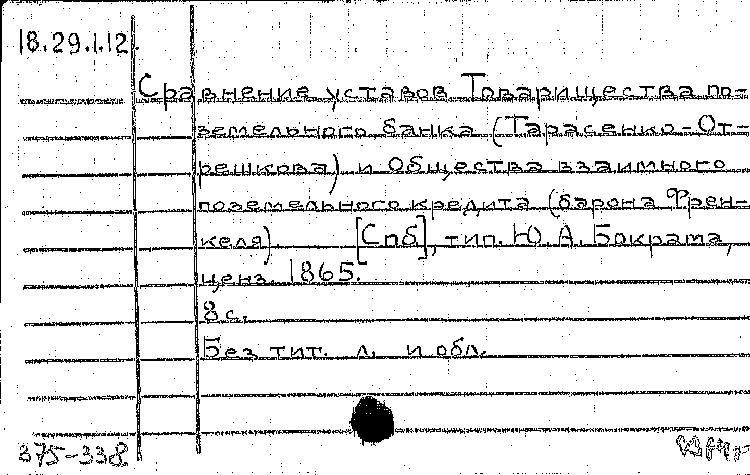 18.29.1.12.
Сравнение уставов Товарищества по-
земельного банка (Тарасенко-От-
решкова) и Общества взаимного
поземельного кредита (барона Френ-
келя). [Спб], тип. Ю. А. Бократа,
ценз. 1865.
8 с.
Без тит. л. и обл.
375-338